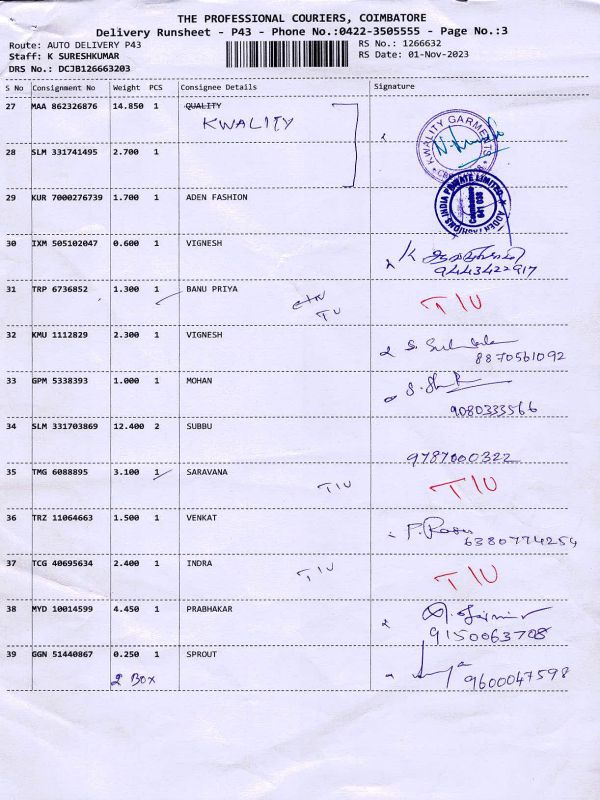 THE PROFESSIONAL COURIERS, COIMBATORE
Delivery Runsheet - P43 - Phone No.:0422-3505555 - Page No.:3
Route: AUTO DELIVERY P43 RS No.: 1266632
Staff: K SURESHKUMAR RS Date: 01-Nov-2023
DRS No.: DCJB126663203
S No Consignment No Weight PCS Consignee Details Signature
27 MAA 862326876 14.850 1 QUALITY
KWALITY
KWALITY GARMENTS
28 SLM 331741495 2.700 1
29 KUR 7000276739 1.700 1 ADEN FASHION
INDIA PRIVATE LIMITED
Coimbatore
641 038
30 IXM 505102047 0.600 1 VIGNESH
9443422917
31 TRP 6736852 1.300 1 BANU PRIYA T/U
TU
32 KMU 1112829 2.300 1 VIGNESH
8870561092
33 GPM 5338393 1.000 1 MOHAN
9080333566
34 SLM 331703869 12.400 2 SUBBU
9787000322
35 TMG 6088895 3.100 1 SARAVANA T/U T/U
36 TRZ 11064663 1.500 1 VENKAT
6380774254
37 TCG 40695634 2.400 1 INDRA T/U T/U
38 MYD 10014599 4.450 1 PRABHAKAR
9150063708
39 GGN 51440867 0.250 1 SPROUT
9600047598
2 BOX